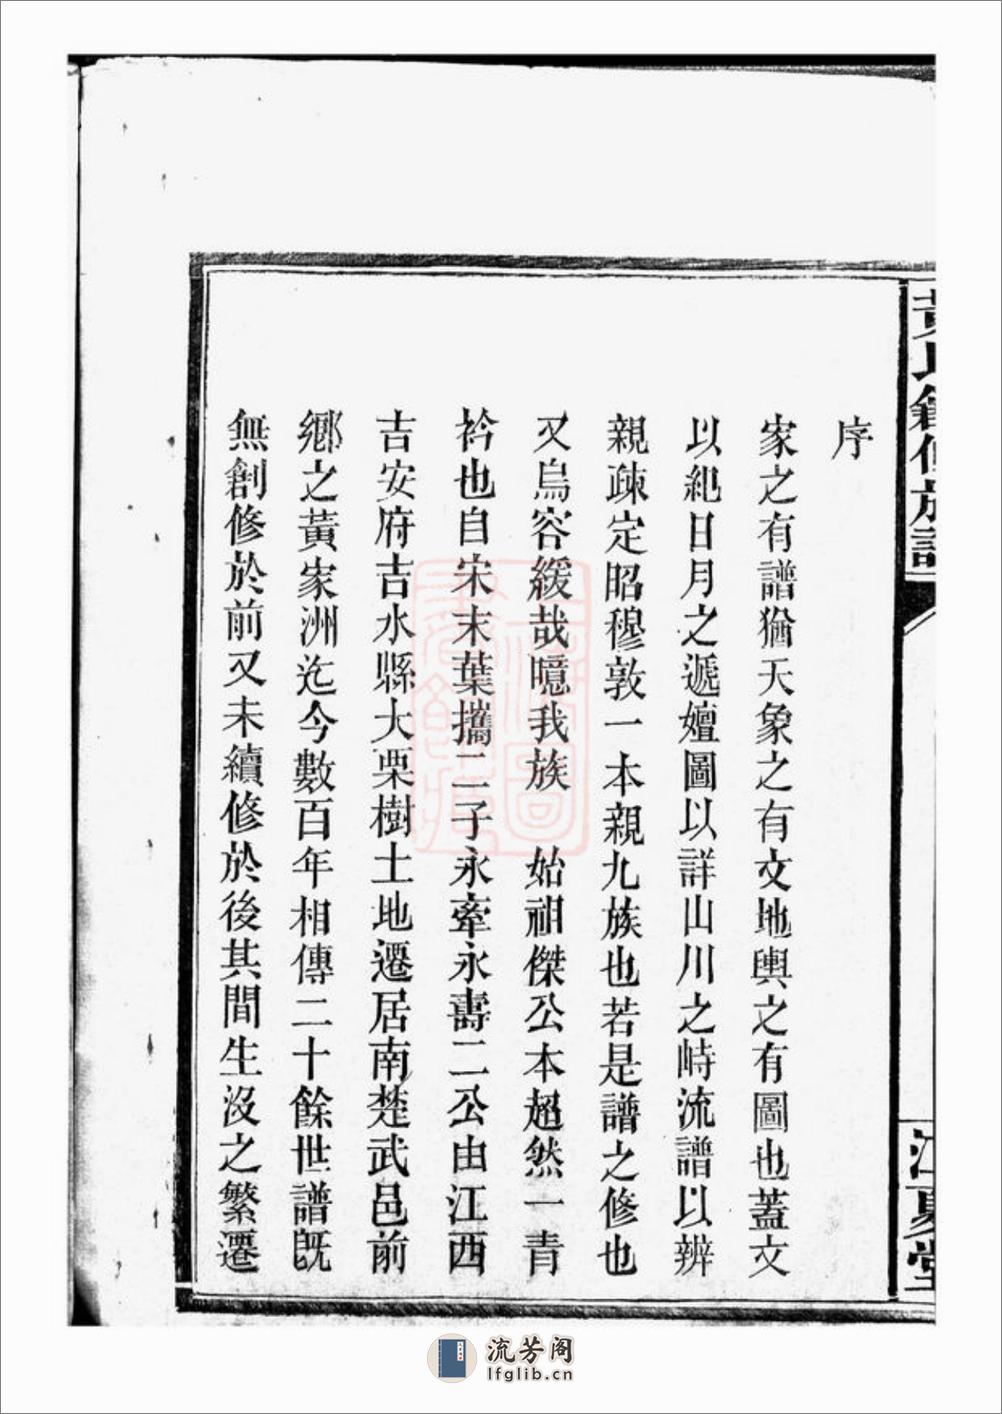 黃氏創修族譜
江夏堂
序
家之有譜猶天象之有文地輿之有圖也蓋文
以紀日月之遞嬗圖以詳山川之峙流譜以辨
親疎定昭穆敦一本親九族也若是譜之修也
又烏容緩哉噫我族　始祖傑公本超然一青
衿也自宋末葉攜二子永牽永壽二公由江西
吉安府吉水縣大栗樹土地遷居南楚武邑前
鄉之黃家洲迄今數百年相傳二十餘世譜旣
無創修於前又未續修於後其間生沒之繁遷
流芳阁
lfglib.cn